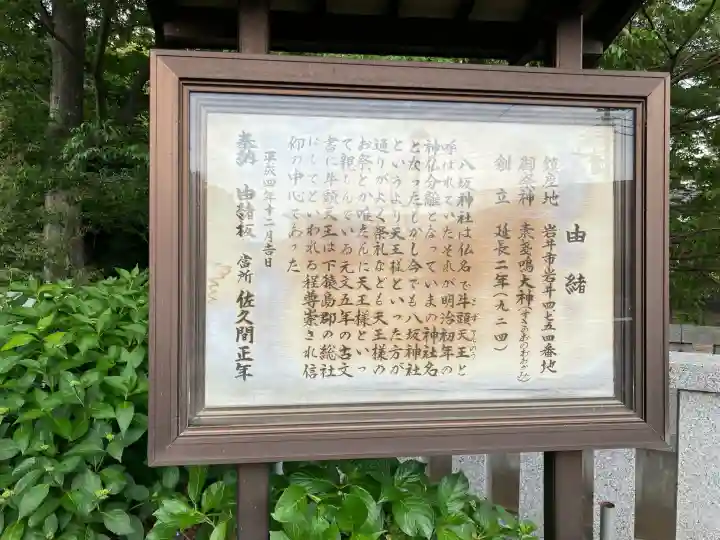 由緒
鎮座地 岩井市岩井四七五四番地
御祭神 素戔嗚大神(すさのおのおおかみ)
創立 延長二年(九二四)
八坂神社は仏名で牛頭天王と
ごずてんのう
呼ばれていたそれが明治初年の
神仏分離となっていまの神社名
となったしかし今でも八坂神社
というより天王様といった方が
通りがよく祭礼なども天王様の
お祭とか唯たんに天王様といっ
て親しんでいる元文五年の古文
書に牛頭天王は下猿島郡の総社
にしてといわれる程尊崇され信
仰の中心であった
平成四年十二月吉日
奉納 由緒板 当所 佐久間正年